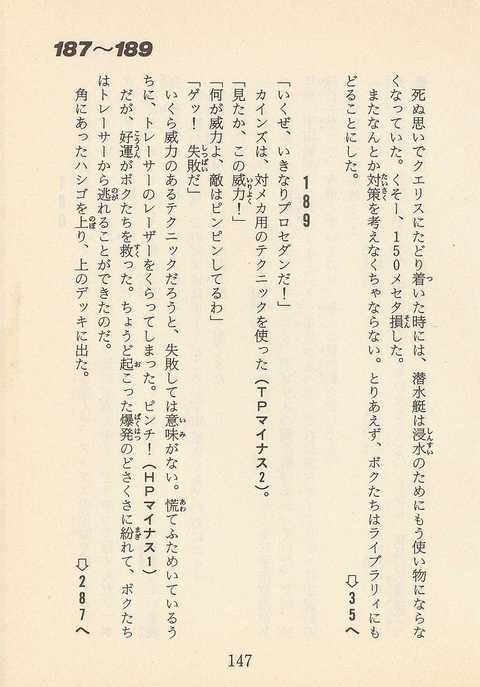 187〜189
死ぬ思いでクエリスにたどり着いた時には、潜水艇は浸水のためにもう使い物にならな
くなっていた。くそー、150メセタ損した。
またなんとか対策を考えなくちゃならない。とりあえず、ボクたちはライブラリィにも
どることにした。
⇨35へ
189
「いくぜ、いきなりプロセダンだ！」
カインズは、対メカ用のテクニックを使った（TPマイナス2）。
「見たか、この威力！」
「何が威力よ、敵はピンピンしてるわ」
「ゲッ！　失敗だ」
いくら威力のあるテクニックだろうと、失敗しては意味がない。慌てふためいているう
ちに、トレーサーのレーザーをくらってしまった。ピンチ！（HPマイナス1）
だが、好運がボクたちを救った。ちょうど起こった爆発のどさくさに紛れて、ボクたち
はトレーサーから逃れることができたのだ。
角にあったハシゴを上り、上のデッキに出た。
⇨287へ
147